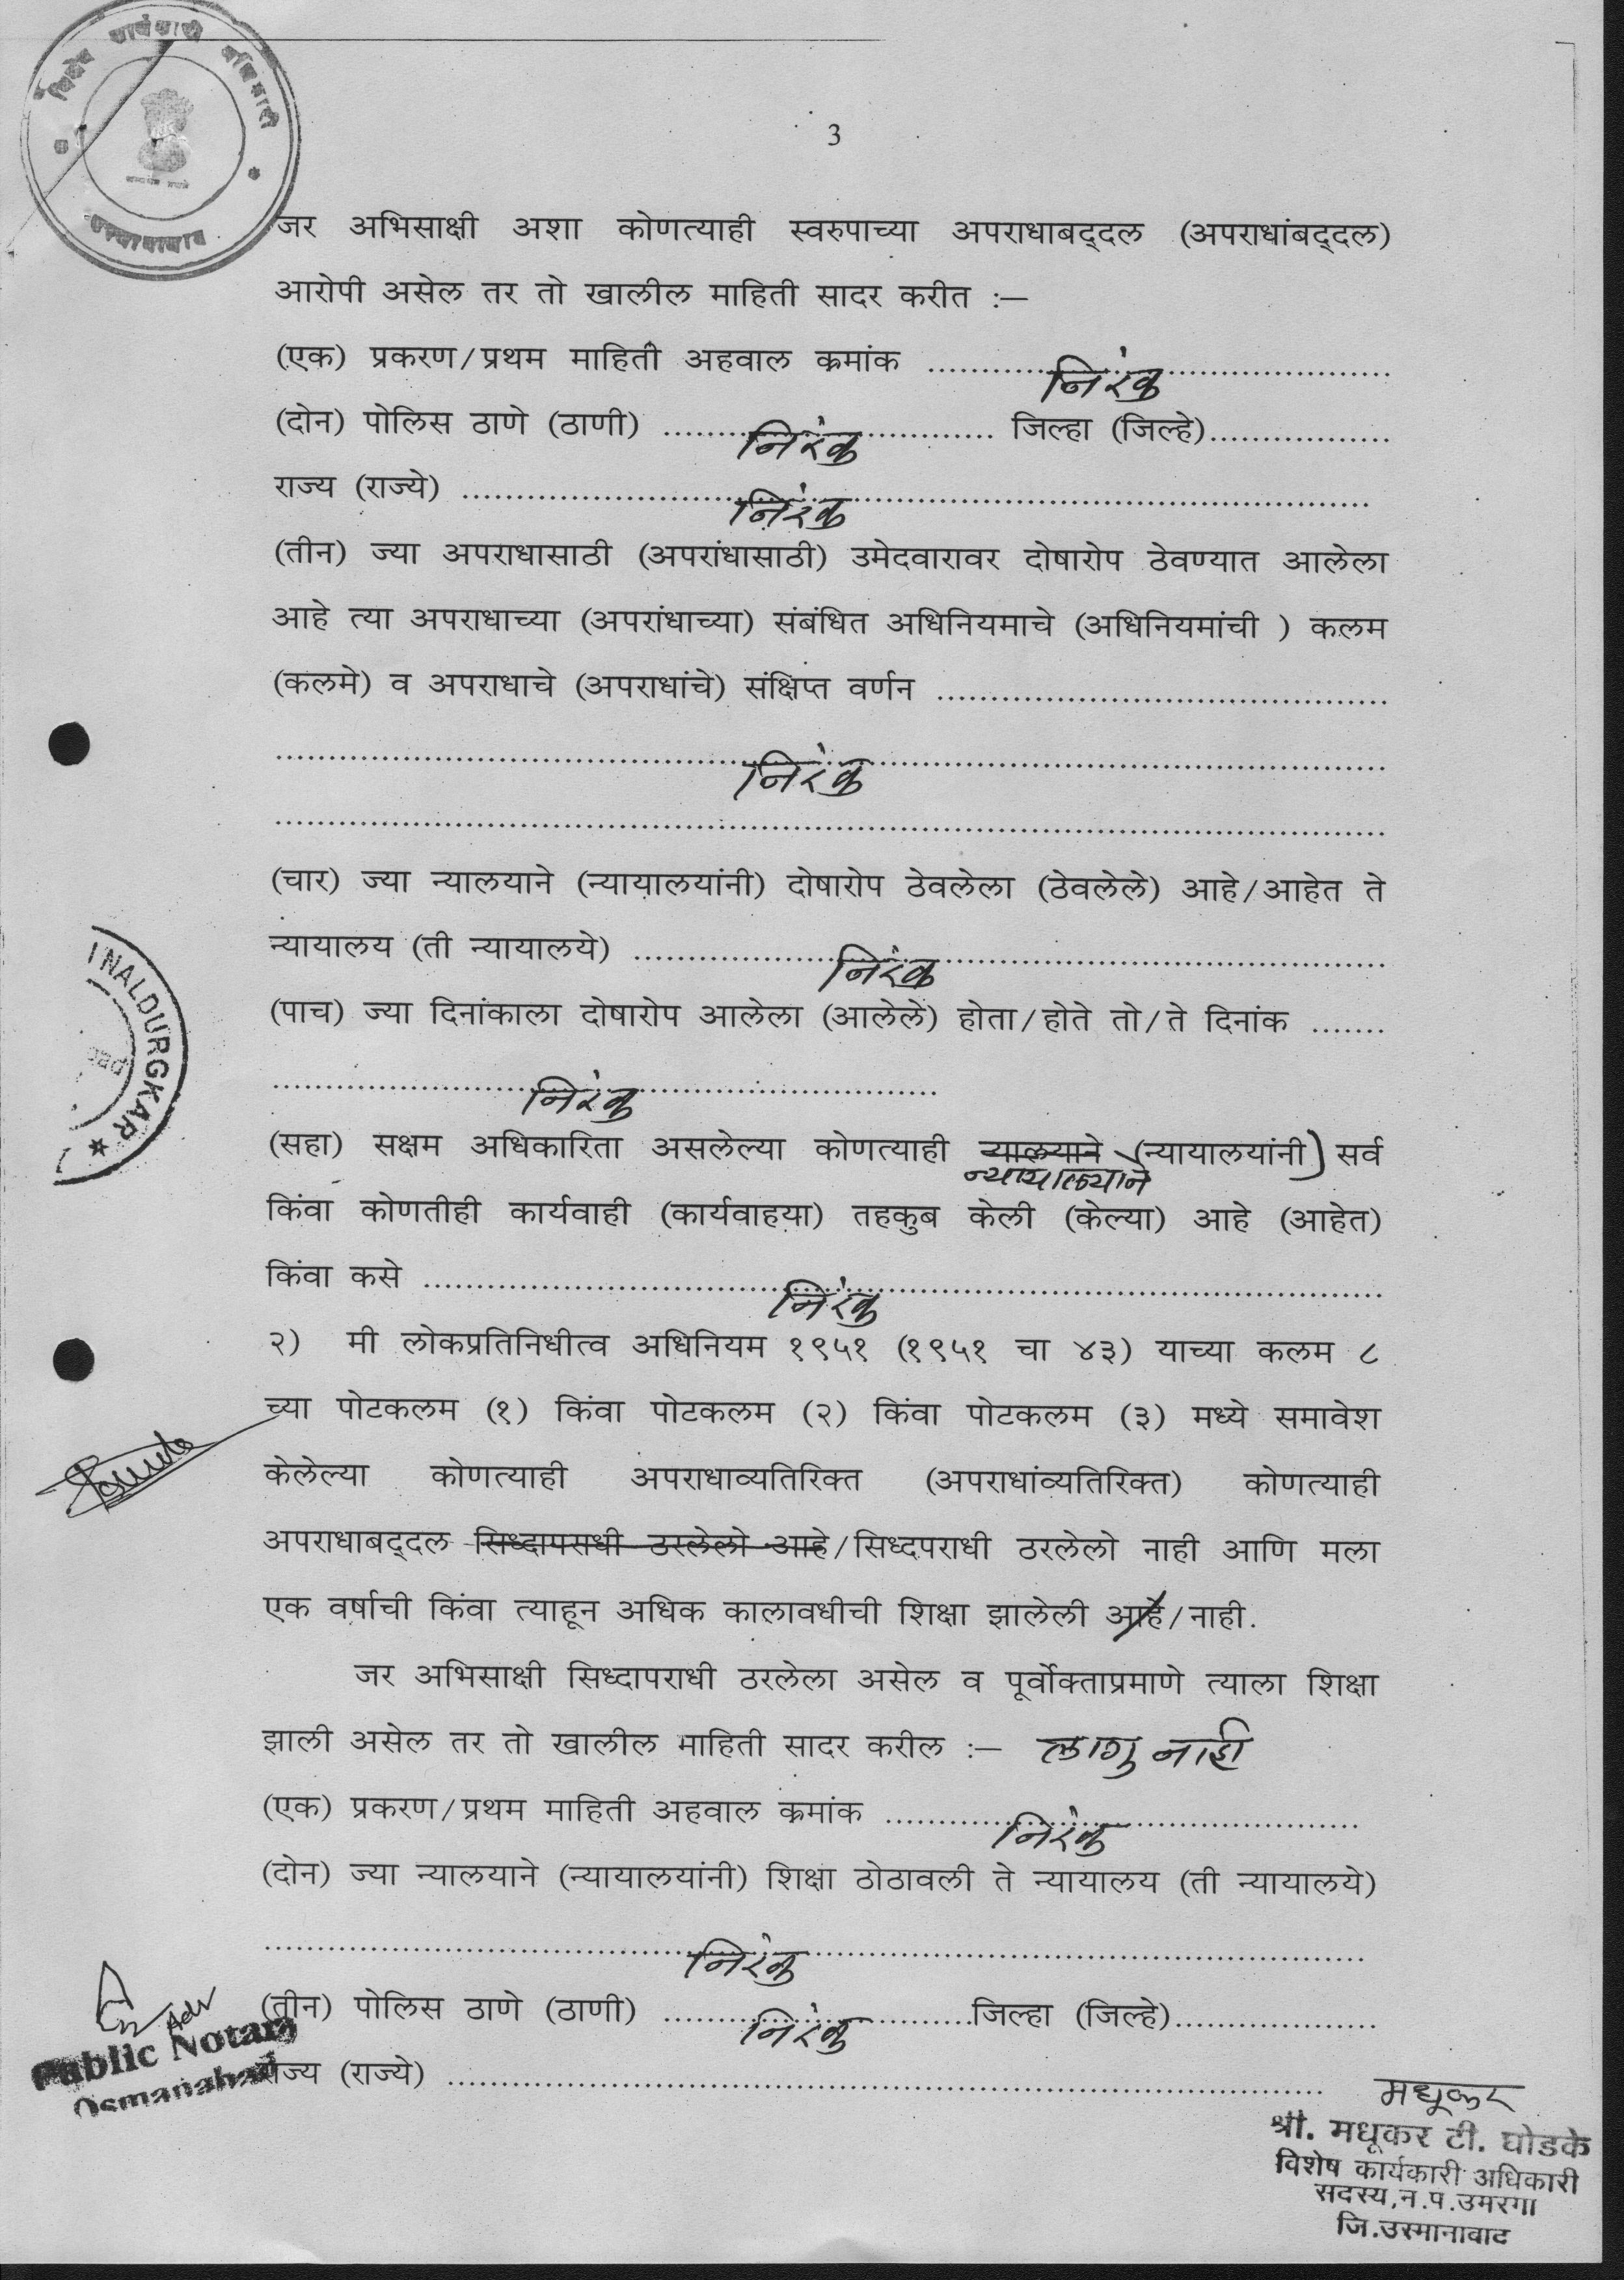 विशेष कार्यकारी अधिकारी
3
जर अभिसाक्षी अशा कोणत्याही स्वरुपाच्या अपराधाबद्दल (अपराधांबद्दल)
आरोपी असेल तर तो खालील माहिती सादर करीत :—
(एक) प्रकरण/प्रथम माहिती अहवाल क्रमांक .......... निरंक ..........
(दोन) पोलिस ठाणे (ठाणी) .......... निरंक .......... जिल्हा (जिल्हे)..........
राज्य (राज्ये) .......... निरंक ..........
(तीन) ज्या अपराधासाठी (अपरांधासाठी) उमेदवारावर दोषारोप ठेवण्यात आलेला
आहे त्या अपराधाच्या (अपरांधाच्या) संबंधित अधिनियमाचे (अधिनियमांची ) कलम
(कलमे) व अपराधाचे (अपराधांचे) संक्षिप्त वर्णन ..........
.......... निरंक ..........
..........
(चार) ज्या न्यालयाने (न्यायालयांनी) दोषारोप ठेवलेला (ठेवलेले) आहे/आहेत ते
न्यायालय (ती न्यायालये) .......... निरंक ..........
(पाच) ज्या दिनांकाला दोषारोप आलेला (आलेले) होता/होते तो/ते दिनांक .......
.......... निरंक ..........
(सहा) सक्षम अधिकारिता असलेल्या कोणत्याही न्यालयाने (न्यायालयांनी) सर्व
न्यायालयाने
किंवा कोणतीही कार्यवाही (कार्यवाहया) तहकुब केली (केल्या) आहे (आहेत)
किंवा कसे .......... निरंक ..........
२) मी लोकप्रतिनिधीत्व अधिनियम १९५१ (१९५१ चा ४३) याच्या कलम ८
च्या पोटकलम (१) किंवा पोटकलम (२) किंवा पोटकलम (३) मध्ये समावेश
केलेल्या कोणत्याही अपराधाव्यतिरिक्त (अपराधांव्यतिरिक्त) कोणत्याही
अपराधाबद्दल सिध्दापराधी ठरलेलो आहे/सिध्दपराधी ठरलेलो नाही आणि मला
एक वर्षाची किंवा त्याहून अधिक कालावधीची शिक्षा झालेली आहे/नाही.
जर अभिसाक्षी सिध्दापराधी ठरलेला असेल व पूर्वोक्ताप्रमाणे त्याला शिक्षा
झाली असेल तर तो खालील माहिती सादर करील :— लागु नाही
(एक) प्रकरण/प्रथम माहिती अहवाल क्रमांक .......... निरंक ..........
(दोन) ज्या न्यालयाने (न्यायालयांनी) शिक्षा ठोठावली ते न्यायालय (ती न्यायालये)
.......... निरंक ..........
(तीन) पोलिस ठाणे (ठाणी) .......... निरंक ..........जिल्हा (जिल्हे)..........
राज्य (राज्ये) ..........
INALDURGKAR
Adv
Public Notary
Osmanabad
मधूकर
श्री. मधूकर टी. घोडके
विशेष कार्यकारी अधिकारी
सदस्य,न.प.उमरगा
जि.उस्मानाबाद